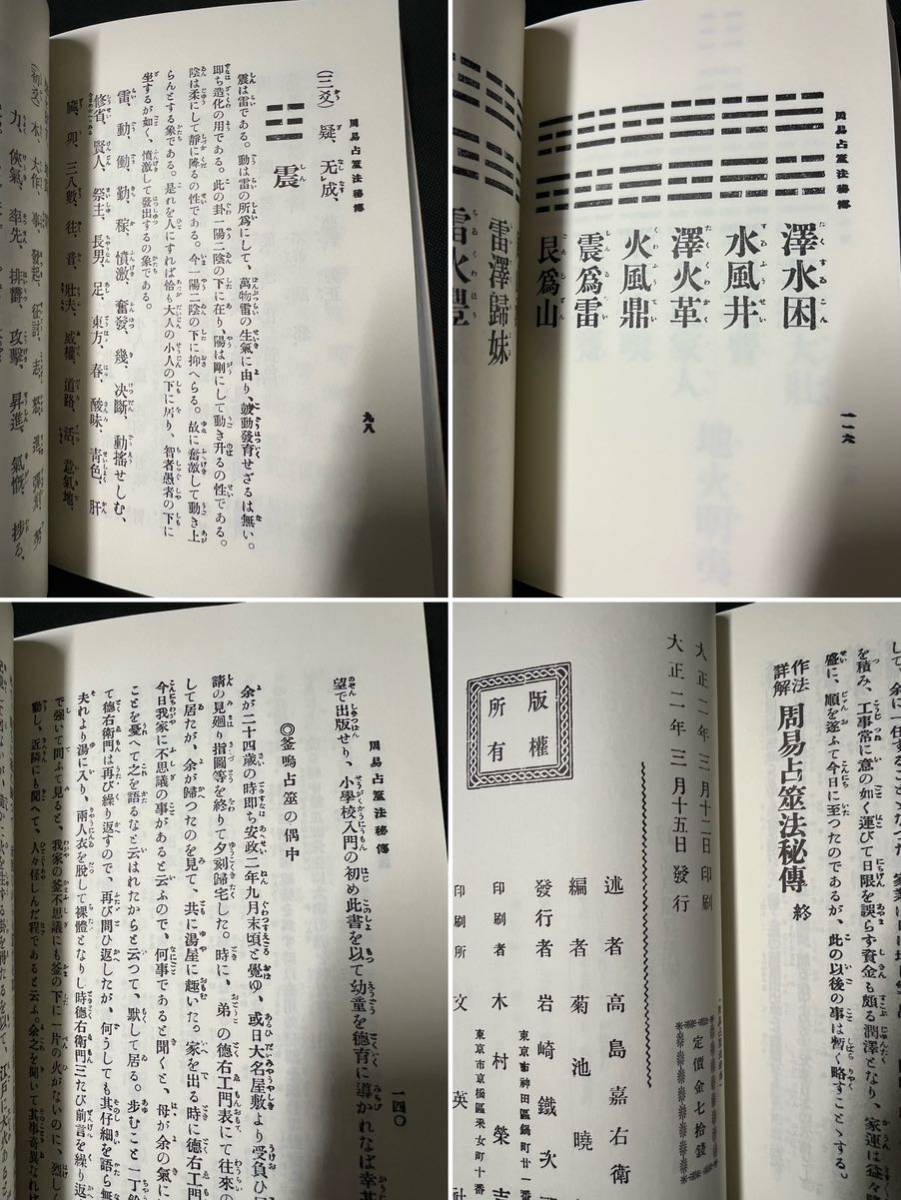 周易占筮法秘傳
九八
(三爻) 疑、无成、
震
震は雷である。動は雷の所爲にして、萬物雷の生氣に由り、鼓動發育せざるは無い。
即ち造化の用である。此の卦一陽二陰の下に在り、陽は剛にして動き升るの性である。
陰は柔にして靜に降るの性である。今一陽二陰の下に抑へらる。故に奮激して動き上
らんとする象である。是れを人にすれば恰も大人の小人の下に居り、智者愚者の下に
坐するが如く、憤激して發出するの象である。
雷、動、働、勤、稼、憤激、奮發、幾、決斷、動搖せしむ、
修省、賢人、祭主、長男、足、東方、春、酸味、靑色、肝
臟、卯、三八數、往、音、壯夫、威權、道路、活、意氣地、
力、俠氣、率先、排欝、攻擊、昇進、氣慨、
周易占筮法秘傳
一一六
澤水困
水風井
澤火革
火風鼎
震爲雷
艮爲山
雷澤歸妹
雷火豐
周易占筮法秘傳
一四〇
望で出版せり、小學校入門の初め此書を以て幼童を德育に導かれなば幸甚
◎釜鳴占筮の偶中
余が二十四歲の時即ち安政二年九月末頃と覺ゆ、或日大名屋敷より受負ひ
請の見廻り指圖等を終りて夕刻歸宅した。時に、弟の德右工門表にて往來の
して居たが、余が歸つたのを見て、共に湯屋に趣いた。家を出る時に德右工門
今日我家に不思議の事があると云ふので、何事であると聞くと、母が余の氣に
ことを憂へて之を語るなと云はれたからと云つて、默して居る。步むこと一丁餘
て德右衛門は再び繰り返すので、再び問ひ返したが、何うしても其仔細を語ら無
夫れより湯に入り、兩人衣を脫して裸體となりし時德右衛門三たび前言を繰り返
で强いて問ふて見ると、我家の釜不思議にも釜の下に一片の火がないのに、烈しく
動し、近隣にも聞へて、人々怪しんだ程であると云ふ。余之を聞いて其事奇異なれ
を積み、工事常に意の如く運びて日限を誤らず資金も頗る潤澤となり、家運は益々
盛に、順を逐ふて今日に至つたのであるが、此の以後の事は暫く略すことゝする。
作法詳解 周易占筮法秘傳 終
大正二年三月十二日印刷
大正二年三月十五日發行
定價金七拾錢
版權所有
述者 高島嘉右衛
編者 菊池曉
發行者 岩崎鐵次
東京市神田區鍋町廿一番
印刷者 木村榮吉
東京市京橋區采女町十番
印刷所 文英社